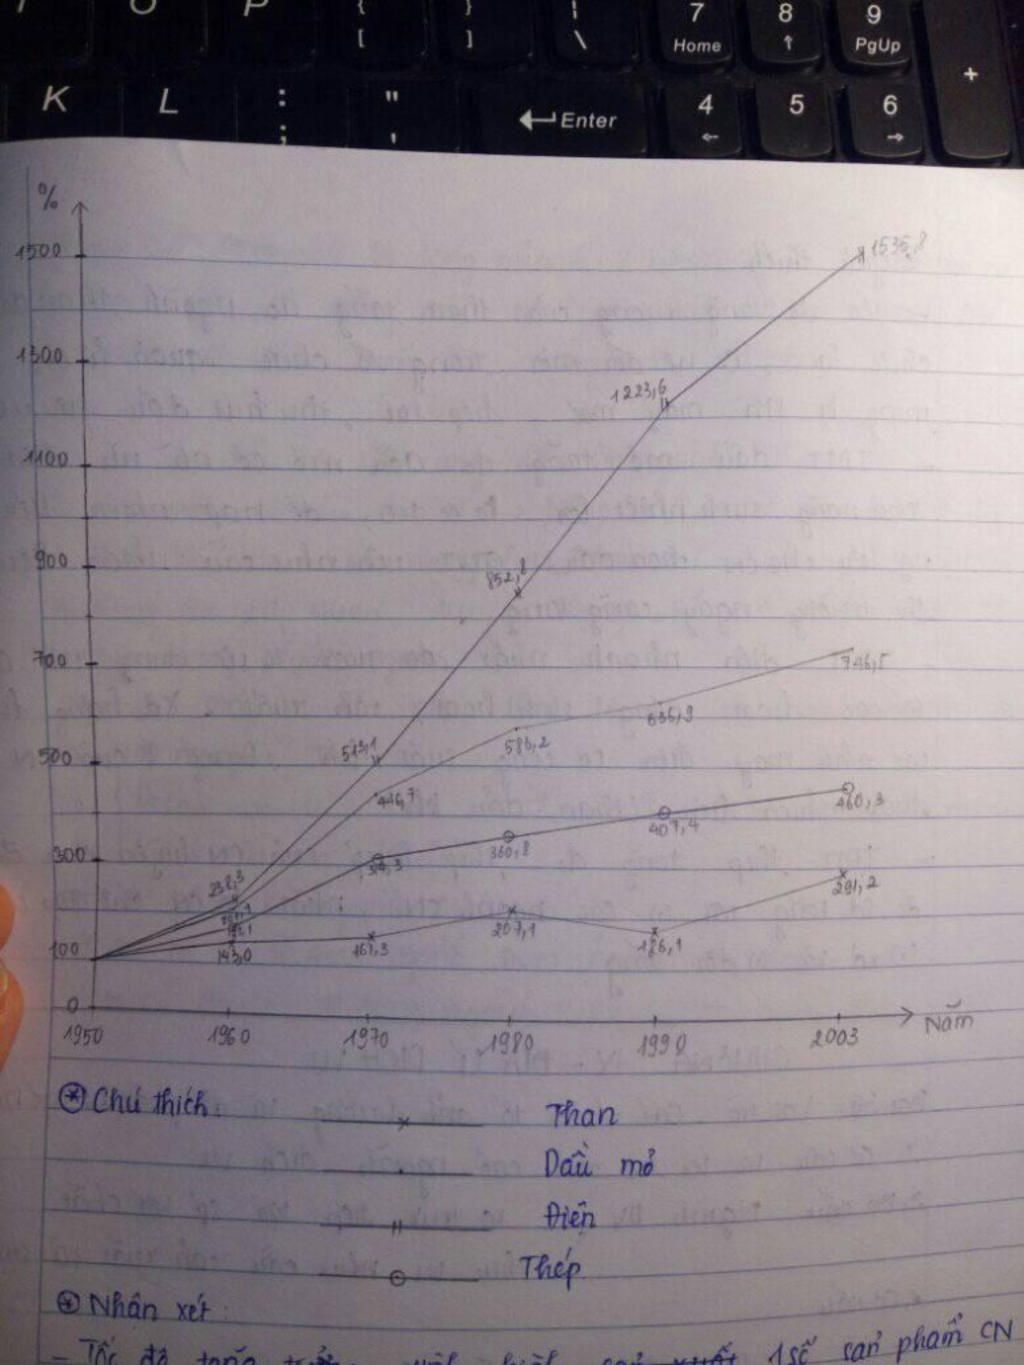 I O P { [ } ] | \ 7 Home 8 ↑ 9 PgUp +
K L : ; " ' ← Enter 4 ← 5 6 →
%
1500
1535,8
1300
1223,6
1100
900
852,8
700
746,5
636,9
586,2
513,1
500
446,7
460,3
407,4
360,8
314,3
300
238,3
291,2
207,1
186,1
161,3
143,0
100
0
1950 1960 1970 1980 1990 2003 Năm
Chú thích
Than
Dầu mỏ
Điện
Thép
Nhận xét:
- Tốc độ tăng 1 số sản phẩm CN